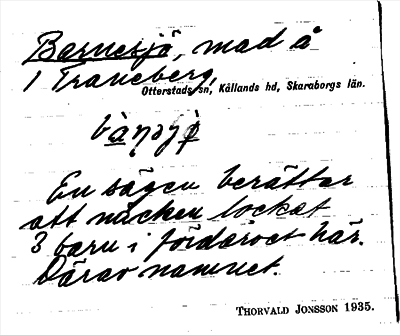 Barnesjö, mad å
1 Traneberg,
Otterstads sn, Kållands hd, Skaraborgs län.
En sägen berättar
att näcken lockat
3 barn i fördärvet här.
Därav namnet.
THORVALD JONSSON 1935.